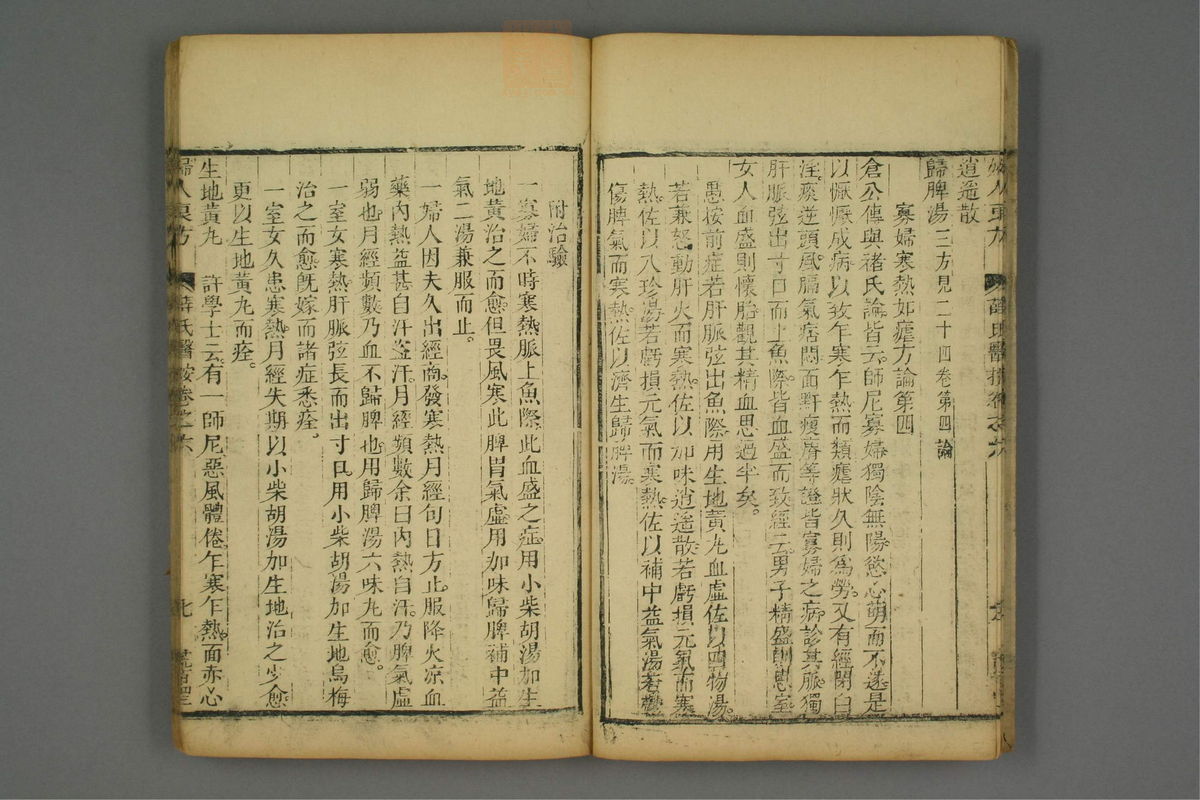 逍遥散
歸脾湯三方見二十四卷第四論
寡婦寒熱如瘧方論第四
倉公傳與褚氏論皆云師尼寡婦獨陰無陽慾心萌而不遂是
以恹恹成病以致乍寒乍熱而類瘧狀久則爲勞又有經閉白
淫痰逆頭風膈氣痞悶面䵟瘦瘠等證皆寡婦之病診其脈獨
肝脈弦出寸口而上魚際皆血盛而致經云男子精盛則思室
女人血盛則懷胎觀其精血思過半矣。
愚按前症若肝脈弦出魚際用生地黃丸血虛佐以四物湯。
若兼怒動肝火而寒熱佐以加味逍遥散若虧損元氣而寒
熱佐以八珍湯若虧損元氣而寒熱佐以補中益氣湯若鬱
傷脾氣而寒熱佐以濟生歸脾湯
附治驗
一寡婦不時寒熱脈上魚際此血盛之症用小柴胡湯加生
地黃治之而愈但畏風寒此脾胃氣虛用加味歸脾補中益
氣二湯兼服而止。
一婦人因夫久出經商發寒熱月經旬日方止服降火凉血
藥內熱益甚自汗盗汗月經頻數余曰內熱自汗乃脾氣虛
弱也月經頻數乃血不歸脾也用歸脾湯六味丸而愈。
一室女寒熱肝脈弦長而出寸口用小柴胡湯加生地烏梅
治之而愈既嫁而諸症悉痊。
一室女久患寒熱月經失期以小柴胡湯加生地治之少愈
更以生地黃丸而痊。
生地黃丸　許學士云有一師尼惡風體倦乍寒乍熱面赤心
婦人良方　薛氏醫按卷之六　七